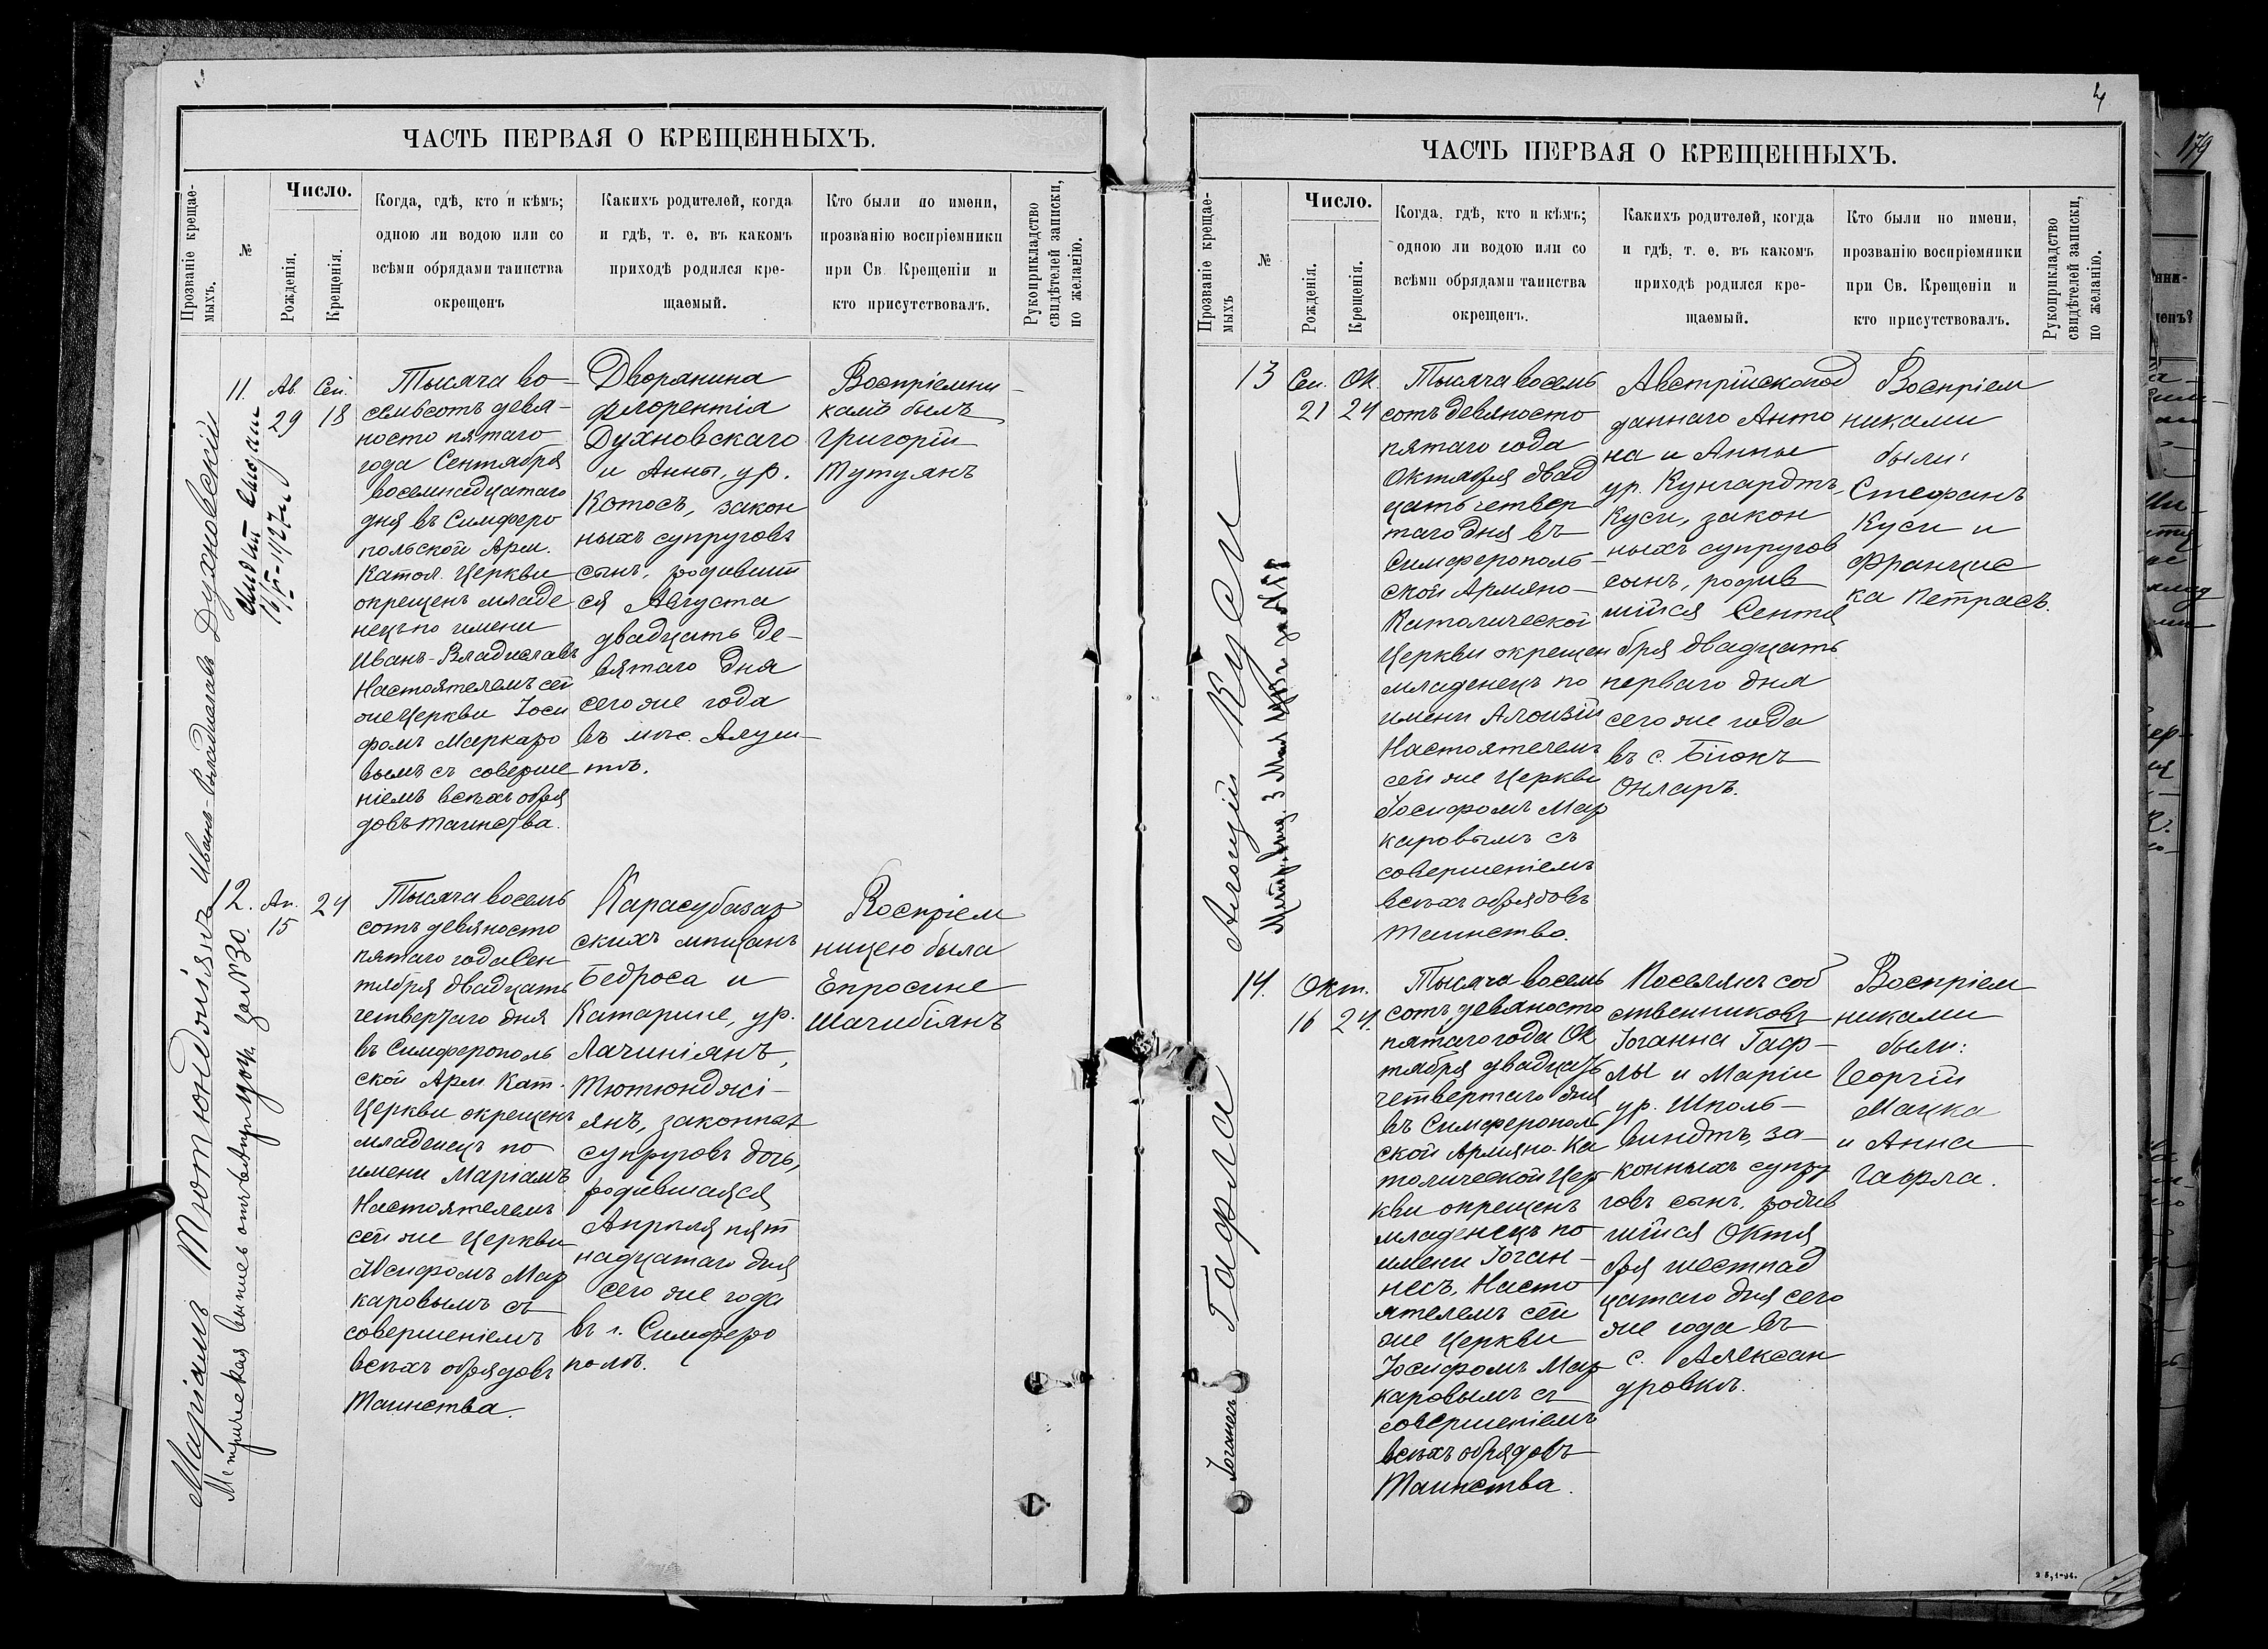 ЧАСТЬ ПЕРВАЯ О КРЕЩЕННЫХЪ.
Прозваніе крещае-
мыхъ.
№
Число.
Рожденія.
Крещенія.
Когда, гдѣ, кто и кѣмъ;
одною ли водою или со
всѣми обрядами таинства
окрещенъ
Какихъ родителей, когда
и гдѣ, т. е. въ какомъ
приходѣ родился кре-
щаемый.
Кто были по имени,
прозванію воспріемники
при Св. Крещеніи и
кто присутствовалъ.
Рукоприкладство
свидѣтелей записки,
по желанію.
Иванъ-Владиславъ Духновскій
11.
Ав.
29
Сен.
18
Тысяча во-
семьсотъ девя-
носто пятаго
года Сентября
восемнадцатаго
дня въ Симферо
польской Арм.
Катол. Церкви
окрещенъ младе
нецъ по имени
Иванъ-Владиславъ
Настоятелемъ сей
же Церкви Іоси
фомъ Маркаро
вымъ съ соверше
ніемъ всѣхъ обря
довъ таинства.
Дворянина
Флорентія
Духновскаго
и Анны, ур.
Котосъ, закон
ныхъ супруговъ
сынъ, родивши
ся Августа
двадцать де-
вятаго дня
сего же года
въ мѣс. Алуш-
тѣ.
Воспріемни-
комъ былъ
Григорій
Тутуянъ
Маріамъ Тютюнджіянъ
Метрическая выпись
за №30.
12.
Ап.
15
24
Тысяча восемь
сотъ девяносто
пятаго года Сен
тября двадцать
четвертаго дня
въ Симферополь
ской Арм. Кат.
Церкви окрещенъ
младенецъ по
имени Маріамъ
Настоятелемъ
сей же Церкви
Іосифомъ Мар
каровымъ съ
совершеніемъ
всѣхъ обрядовъ
Таинства.
Карасубазар
скихъ мѣщанъ
Бедроса и
Катарине, ур.
Лачиніянъ,
Тютюнджі-
янъ, законных
супруговъ дочь,
родившаяся
Апрѣля пят
надцатаго дня
сего же года
въ г. Симферо
полѣ.
Воспріем
ницею была
Епросине
Шагибіянъ
4
ЧАСТЬ ПЕРВАЯ О КРЕЩЕННЫХЪ.
Прозваніе крещае-
мыхъ
№
Число.
Рожденія.
Крещенія.
Когда, гдѣ, кто и кѣмъ;
одною ли водою или со
всѣми обрядами таинства
окрещенъ.
Какихъ родителей, когда
и гдѣ, т. е. въ какомъ
приходѣ родился кре-
щаемый.
Кто были по имени,
прозванію воспріемники
при Св. Крещеніи и
кто присутствовалъ.
Рукоприкладство
свидѣтелей записки,
по желанію.
Алоизій Куси
13
Сен.
21
Ок.
24
Тысяча восемь
сотъ девяносто
пятаго года
Октября двад
цать четвер
таго дня въ
Симферополь-
ской Армяно-
Католической
Церкви окрещен
младенецъ по
имени Алоизій
Настоятелемъ
сей же Церкви
Іосифомъ Мар
каровымъ съ
совершеніемъ
всѣхъ обрядовъ
Таинства.
Австрійскопод
даннаго Анто
на и Анны
ур. Кунгардтъ,
Куси, закон
ныхъ супругов
сынъ, родив
шійся Сентя
бря двадцать
перваго дня
сего же года
въ с. Біюкъ
Онларъ.
Воспріем
никами
были:
Стефанъ
Куси и
Францис
ка Петрасъ.
Іоганнесъ Гафла
14.
Окт.
16
24.
Тысяча восемь
сотъ девяносто
пятаго года Ок
тября двадцать
четвертаго дня
въ Симферополь
ской Армяно-Ка
толической Цер
кви окрещенъ
младенецъ по
имени Іоган-
несъ, Насто
ятелемъ сей
же Церкви
Іосифомъ Мар
каровымъ съ
совершеніемъ
всѣхъ обрядовъ
Таинства.
Поселянъ соб
ственниковъ
Іоганна Гаф-
лы и Маріи
ур. Шполь-
виндтъ, за-
конныхъ супру
говъ сынъ, родив
шійся Октя
бря шестнад
цатаго дня сего
же года въ
с. Алексан
дровкѣ.
Воспріем
никами
были:
Георгій
Мацка
и Анна
Гафла.
179